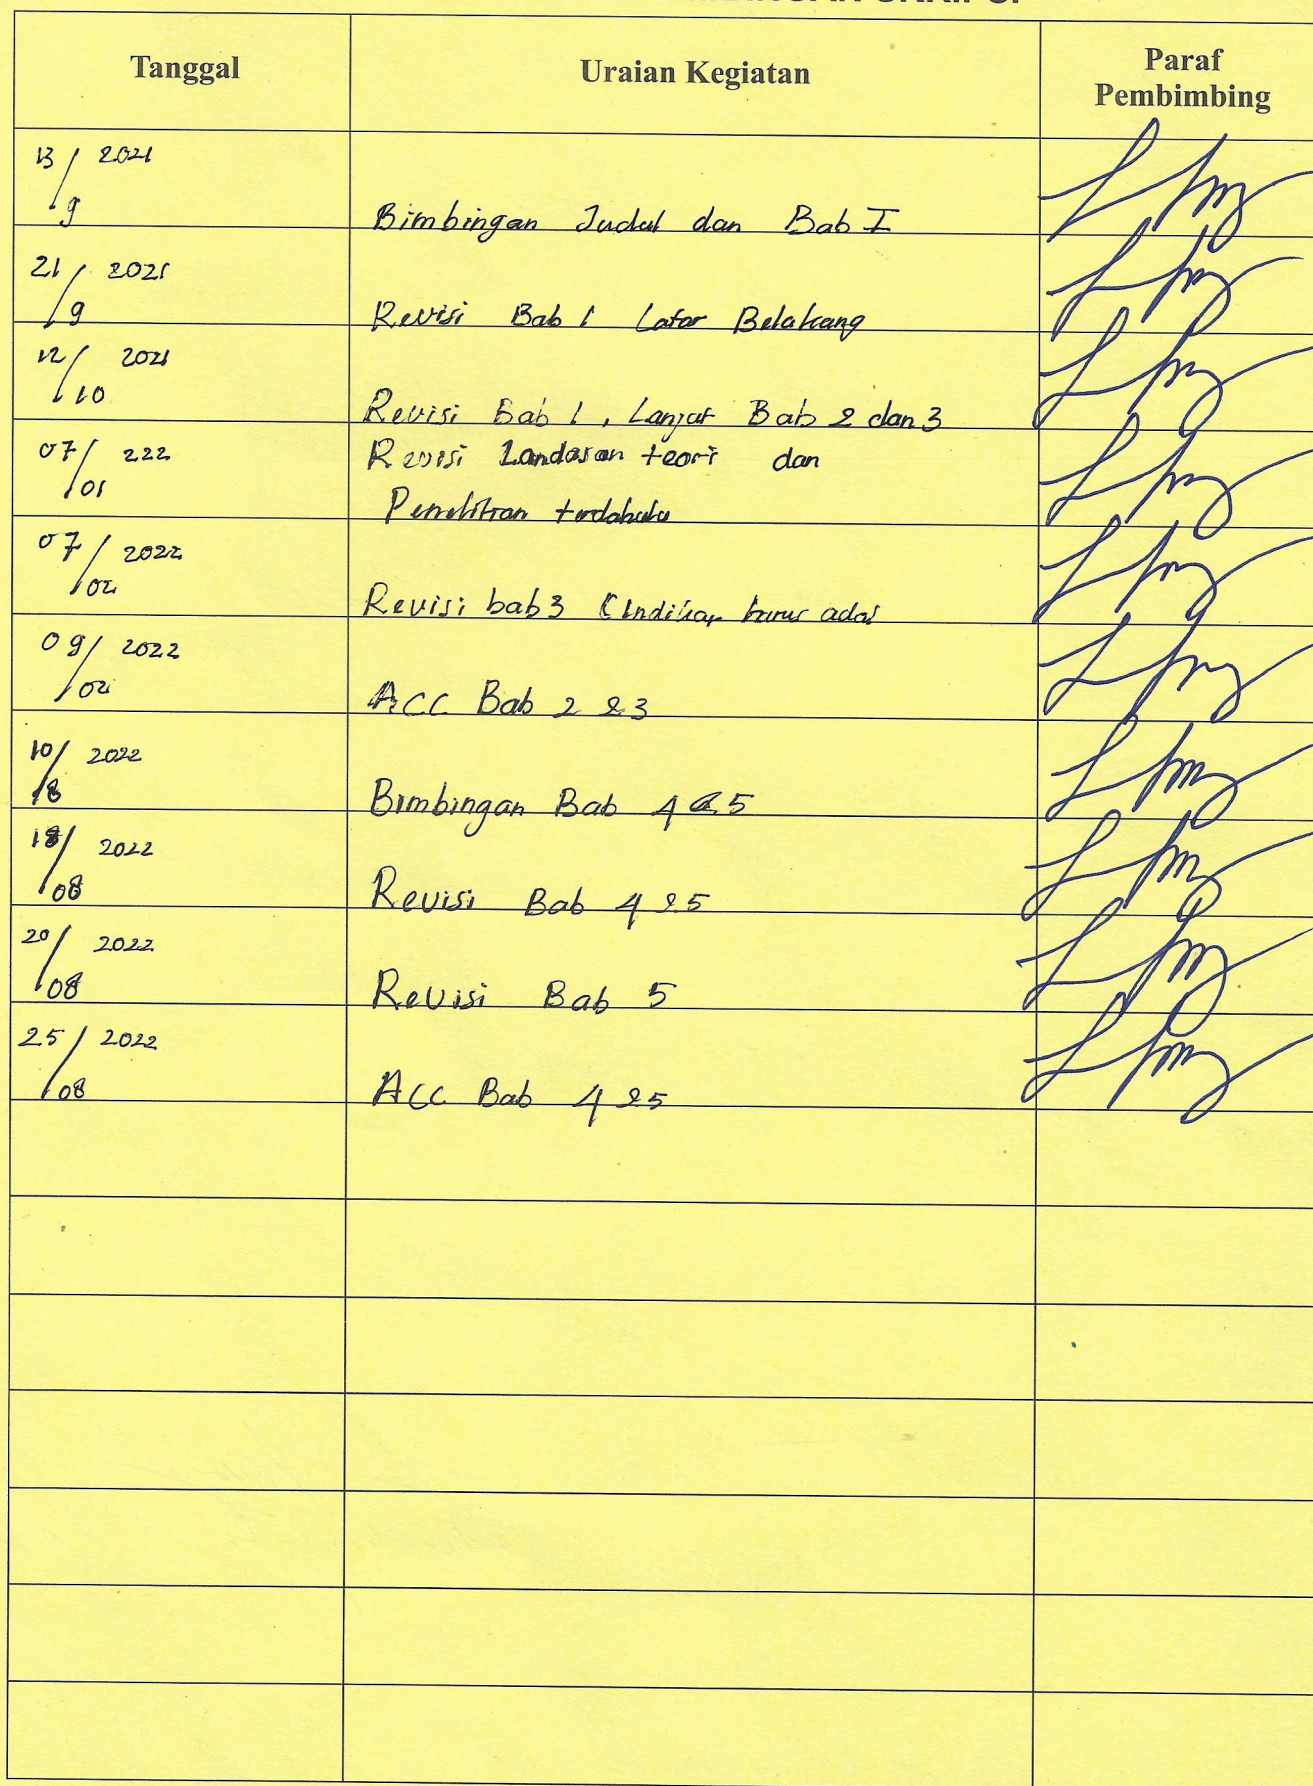 Tanggal Uraian Kegiatan Paraf
Pembimbing
13/9 2021 Bimbingan Judul dan Bab I
21/9 2021 Revisi Bab 1 Latar Belakang
12/10 2021 Revisi Bab 1, Lanjut Bab 2 dan 3
07/01 222 Revisi Landasan teori dan
Penelitian terdahulu
07/02 2022 Revisi bab 3 (Indikator harus ada)
09/02 2022 ACC Bab 2 & 3
10/8 2022 Bimbingan Bab 4 & 5
18/08 2022 Revisi Bab 4 & 5
20/08 2022 Revisi Bab 5
25/08 2022 ACC Bab 4 & 5